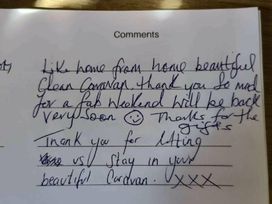 Comments
Like home from home beautiful
Clean Caravan thank you so much
for a fab weekend will be back
very soon ☺ Thanks for the
gifts
Thank you for letting
us stay in your
beautiful Caravan. xxx